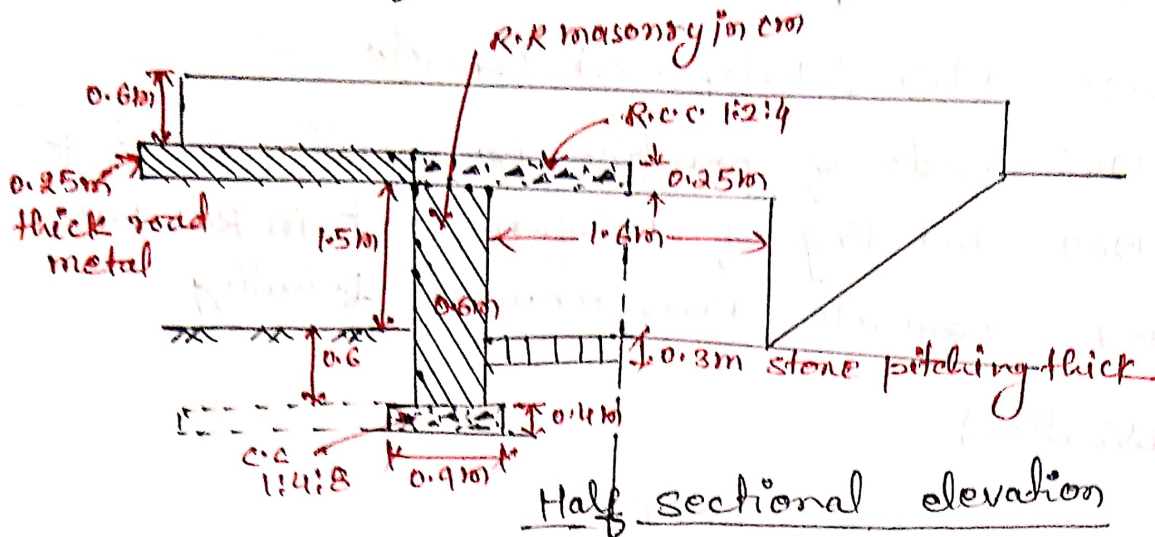 R.R masonry in cm
0.6m
R.C.C. 1:2:4
0.25m
thick road
metal
0.25m
1.5m
1.6m
0.6m
0.6
0.3m stone pitching thick
0.4m
C.C
1:4:8
0.9m
Half sectional elevation